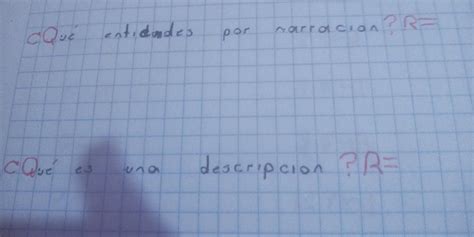 ¿Qué entidades por narracion? R=
¿Qué es una descripcion? R=